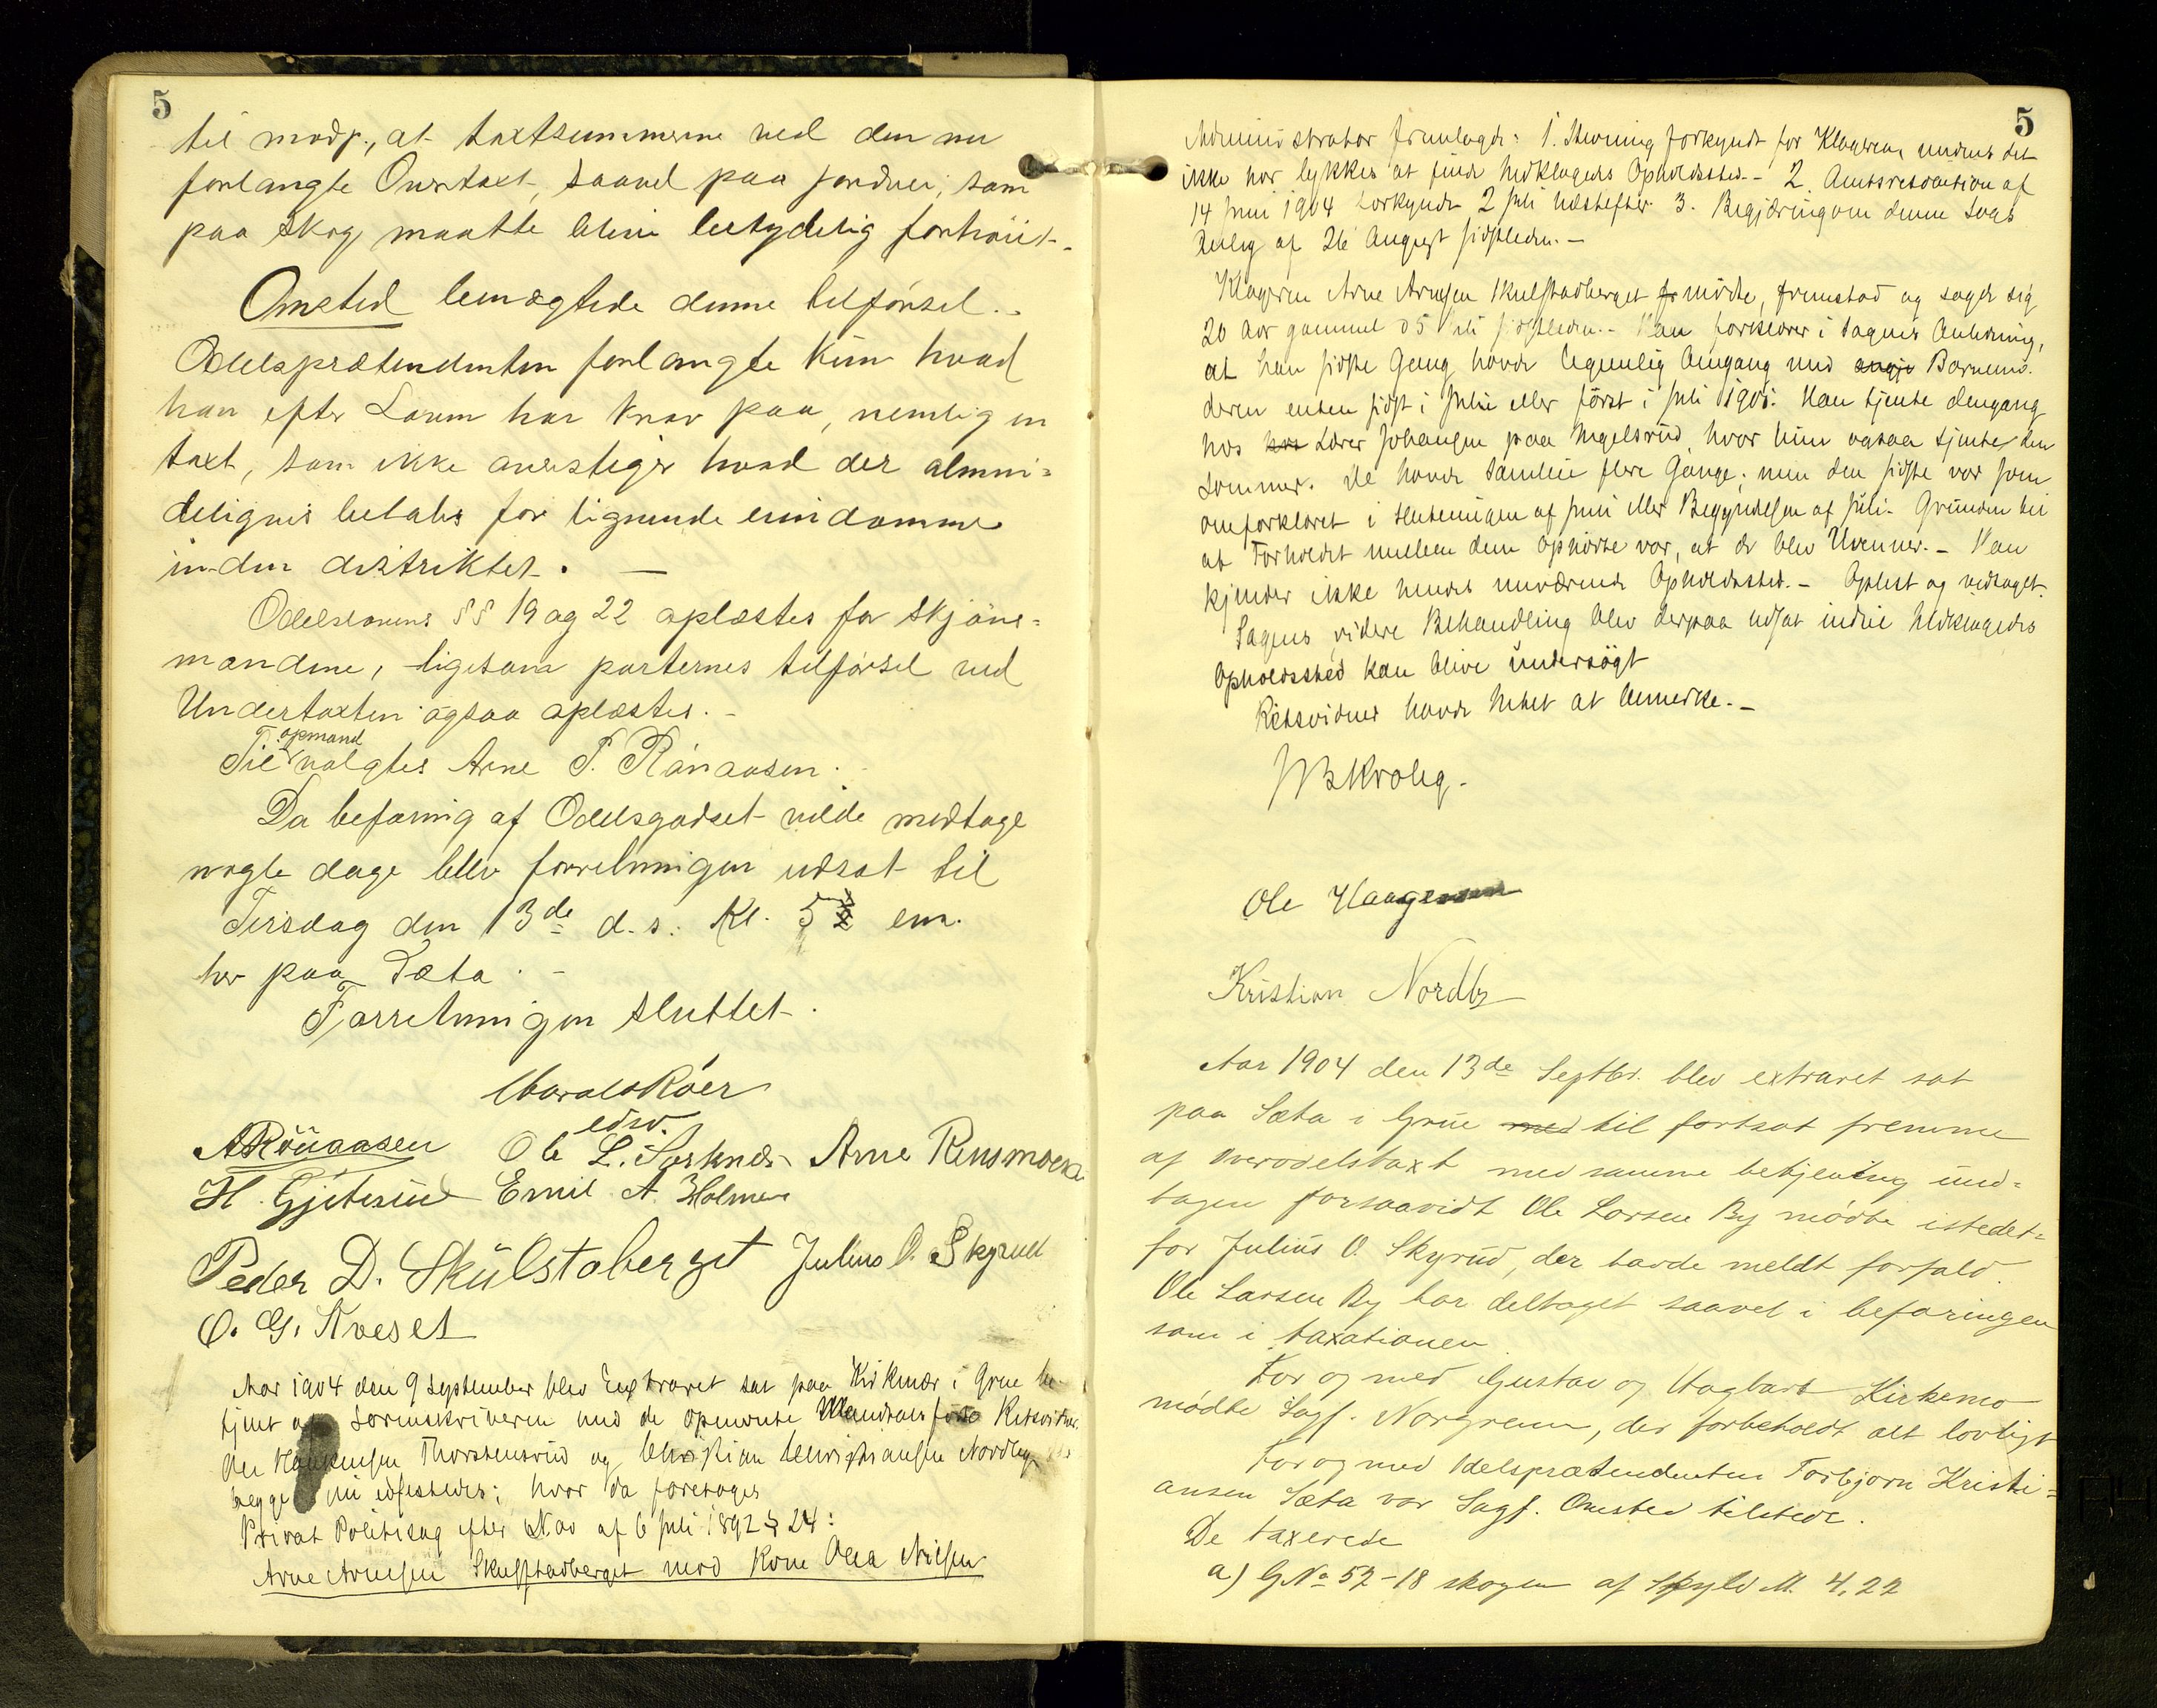 5
til modp., at taxtsummerne ved den nu
forlangte Overtaxt, saavel paa jordvei, som
paa skog, maatte blive betydelig forhöiet.
Omsted benægtede denne tilförsel.
Odelsprætendenten forlangte kun hvad
han efter Loven har krav paa, nemlig en
taxt, som ikke overstiger hvad der almin-
deligvis betales for lignende eiendomme
inden distriktet. —
Odelslovens §§ 19 og 22 oplæstes for skjöns-
mændene, ligesom parternes tilförsel ved
Undertaxten ogsaa oplæstes. -
opmand
Til valgtes Arne P. Rönaasen.
Da befaring af Odelsgodset vilde medtage
nogle dage blev forretningen udsat til
Tirsdag den 13de d.s. Kl. 5 em.
her paa Sæta. -
Forretningen sluttet.
Harald Röer
edsv.
A Rönaasen Ole L. Arne Rensmoen
H. Gjeterud Emil A. Holmen
Peder D. Skulstaberget Julius O. Skyrud
O. G. Kveset
Aar 1904 den 9 September blev Extraret sat paa Kirkenær i Grue be-
tjent af Sorenskriveren med de opnævnte Retsvidner
Thorstensrud og Christian Christiansen Nordby
begge nu edfæstede; hvor da foretoges
Privat Politisag efter Lov af 6 Juli 1892 § 24:
Arne Arnesen Skulstadberget mod Kone Olea Nilsen
5
Administrator fremlagde: 1. Stevning forkyndt for Klageren, medens det
ikke har lykkes at finde Indklagedes Opholdssted. - 2. Amtsresolution af
14 Juni 1904 forkyndt 2 Juli næstefter 3. Begjæring om denne Sags
Anlæg af 26 August sidstleden. —
Klageren Arne Arnesen Skulstadberget fr mödte, fremstod og sagde sig
20 Aar gammel 5 Juli sidstleden. - Han forklarer i Sagens Anledning,
at han sidste Gang havde legemlig Omgang med angje Barnemo-
deren enten sidst i Juni eller först i Juli 1901. Han tjente dengang
hos hos Lærer Johansen paa Ingelsrud, hvor hun ogsaa tjente den
Sommer. De havde Samleie flere Gange; men den sidste var som
omforklaret i Slutningen af Juni eller Begyndelsen af Juli. Grunden til
at Forholdet mellem dem ophörte var, at de blev Uvenner. - Han
kjender ikke hendes nuværende Opholdssted. - Oplæst og vedtaget.
Sagens videre Behandling blev derpaa udsat indtil Indklagedes
Opholdssted kan blive undersögt
Retsvidner havde Intet at bemerke. -
Krohg.
Ole Haagensen
Kristian Nordby
Aar 1904 den 13de Septbr. blev extraret sat
paa Sæta i Grue med til fortsat fremme
af overodelstaxt med samme betjening und-
tagen forsaavidt Ole Larsen By mödte istedet-
for Julius O. Skyrud, der havde meldt forfald.
Ole Larsen By har deltaget saavel i befaringen
som i taxationen
For og med Gustav og Hagbart Kirkemo
mödte Sagf. Norgrenn, der forbeholdt alt lovligt
For og med Odelsprætendenten Torbjörn Kristi-
ansen Sæta var Sagf. Omsted tilstede.
De taxerede
a) G No 52-18 skogen af Skyld M. 4,22